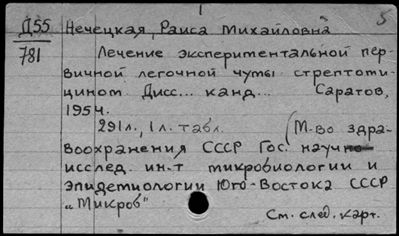 5
Д55 Нечецкая, Раиса Михайловна
781 Лечение экспериментальной пер-
вичной легочной чумы стрептоми-
цином. Дисс... канд... Саратов,
1954.
291л., 1л. табл. (М-во здра-
воохранения СССР Гос. научно-
исслед. ин-т микробиологии и
эпидемиологии Юго-Востока СССР
„Микроб"
См. след. карт.